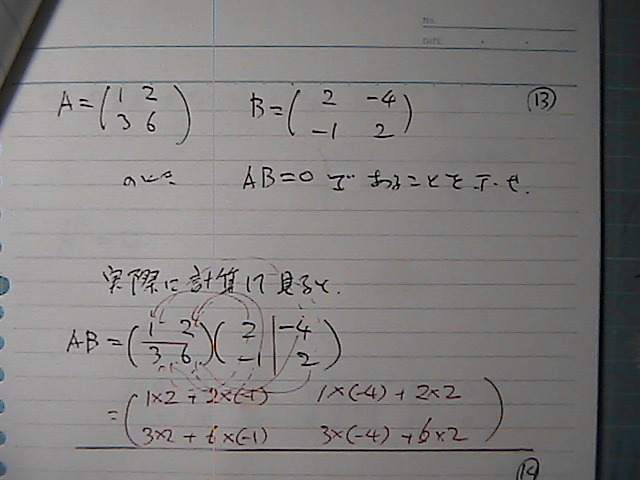 NO.
DATE
A = ( 1 2 B = ( 2 -4 ⑬
3 6 ) -1 2 )
のとき AB=0 であることを示せ.
実際に計算して見ると.
AB = ( 1 2 ) ( 2 | -4 )
3 6 -1 | 2
= ( 1×2 + 2×(-1) 1×(-4) + 2×2 )
3×2 + 6×(-1) 3×(-4) + 6×2
⑭